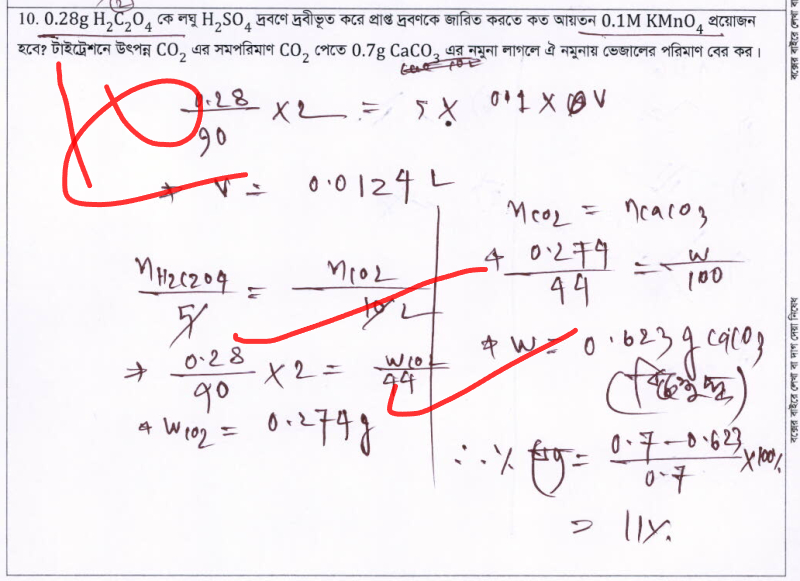 10. 0.28g H₂C₂O₄ কে লঘু H₂SO₄ দ্রবণে দ্রবীভূত করে প্রাপ্ত দ্রবণকে জারিত করতে কত আয়তন 0.1M KMnO₄ প্রয়োজন
হবে? টাইট্রেশনে উৎপন্ন CO₂ এর সমপরিমাণ CO₂ পেতে 0.7g CaCO₃ এর নমুনা লাগলে ঐ নমুনায় ভেজালের পরিমাণ বের কর।
0.28/90 × 2 = 5 × 0.1 × V
⇒ V = 0.0124 L
nH2C2O4/5 = nCO2/10 2
⇒ 0.28/90 × 2 = WCO2/44
⇒ WCO2 = 0.274g
nCO2 = nCaCO3
⇒ 0.274/44 = W/100
⇒ W = 0.623 g CaCO3
(বিশুদ্ধ)
∴ % = (0.7 - 0.623)/0.7 × 100%
= 11%
বক্সের বাইরে লেখা বা দাগ দেয়া নিষেধ